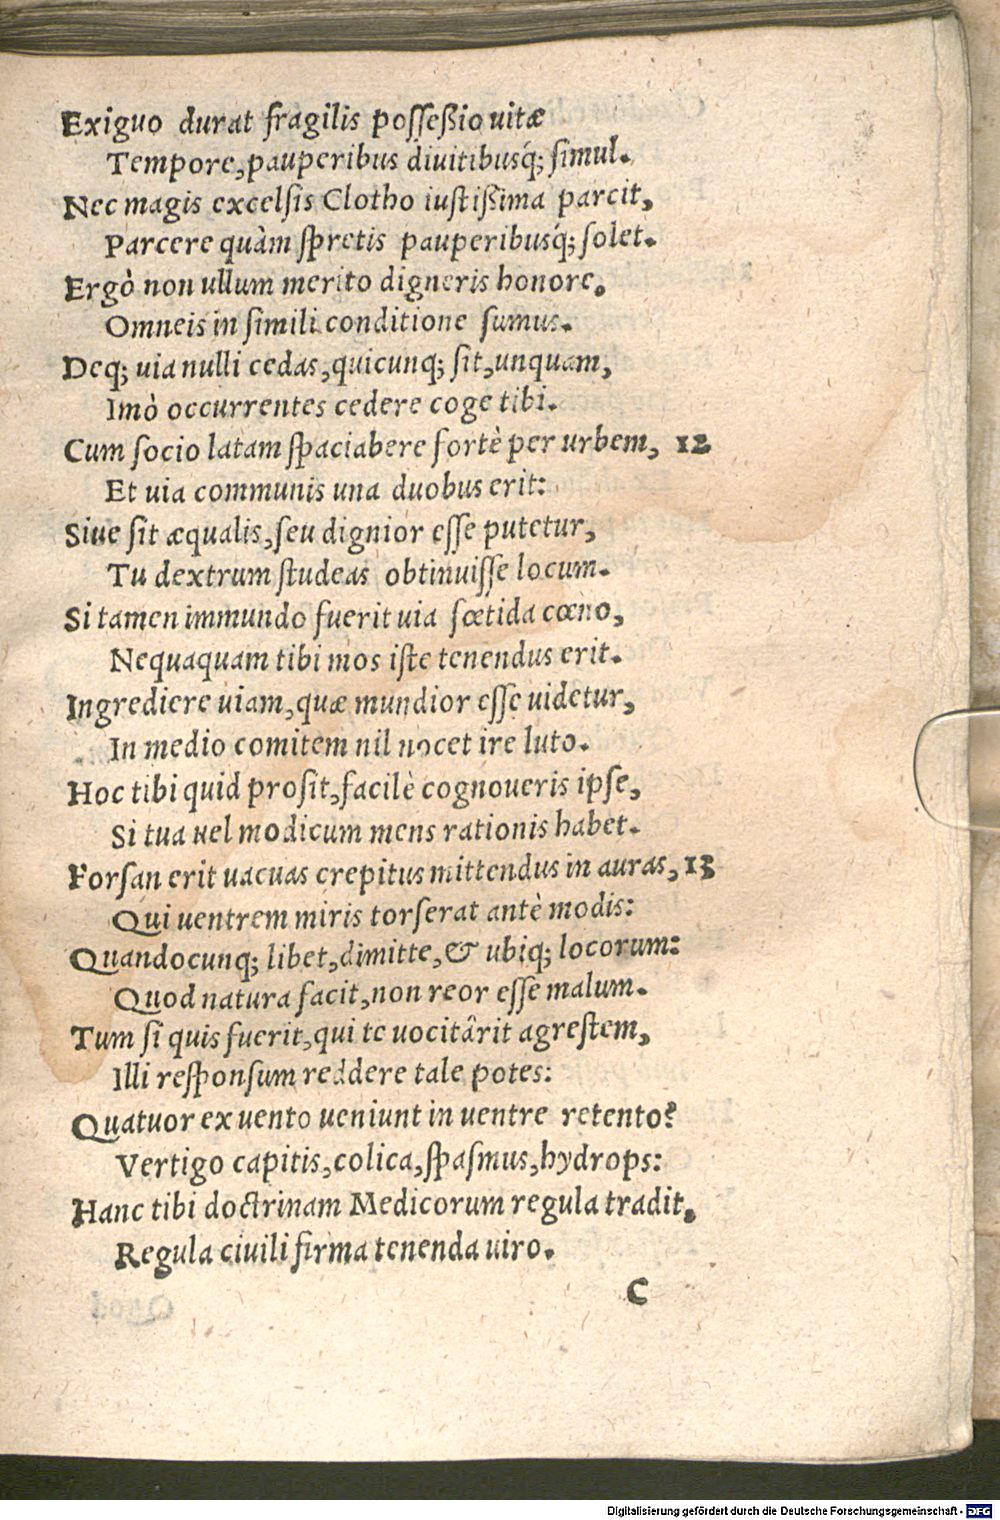 Exiguo durat fragilis posseßio uitæ
Tempore, pauperibus diuitibusq́; simul.
Nec magis excelsis Clotho iustißima parcit,
Parcere quàm spretis pauperibusq́; solet.
Ergò non ullum merito digneris honore,
Omneis in simili conditione sumus.
Deq; uia nulli cedas, quicunq; sit, unquam,
Imò occurrentes cedere coge tibi.
Cum socio latam spaciabere fortè per urbem, 12
Et uia communis una duobus erit:
Siue sit æqualis, seu dignior esse putetur,
Tu dextrum studeas obtinuisse locum.
Si tamen immundo fuerit uia fœtida cœno,
Nequaquam tibi mos iste tenendus erit.
Ingrediere uiam, quæ mundior esse uidetur,
In medio comitem nil nocet ire luto.
Hoc tibi quid prosit, facilè cognoueris ipse,
Si tua uel modicum mens rationis habet.
Forsan erit uacuas crepitus mittendus in auras, 13
Qui uentrem miris torserat antè modis:
Quandocunq; libet, dimitte, & ubiq; locorum:
Quod natura facit, non reor esse malum.
Tum si quis fuerit, qui te uocitârit agrestem,
Illi responsum reddere tale potes:
Quatuor ex uento ueniunt in uentre retento?
Vertigo capitis, colica, spasmus, hydrops:
Hanc tibi doctrinam Medicorum regula tradit,
Regula ciuili firma tenenda uiro.
C
Digitalisierung gefördert durch die Deutsche Forschungsgemeinschaft - DFG